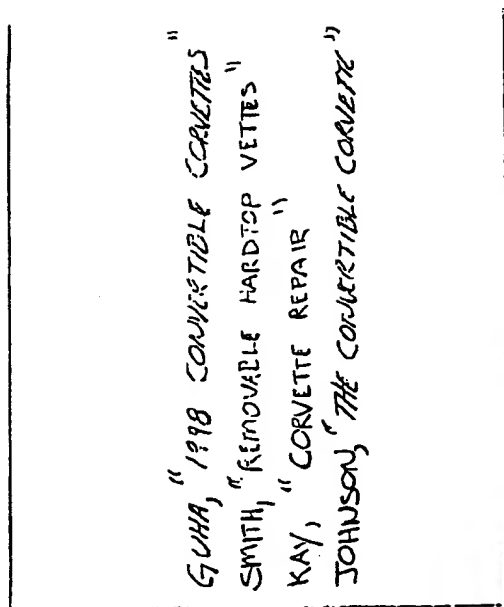 GUHA, "1998 CONVERTIBLE CORVETTES"
SMITH, "REMOVABLE HARDTOP VETTES"
KAY, "CORVETTE REPAIR"
JOHNSON, "THE CONVERTIBLE CORVETTE"